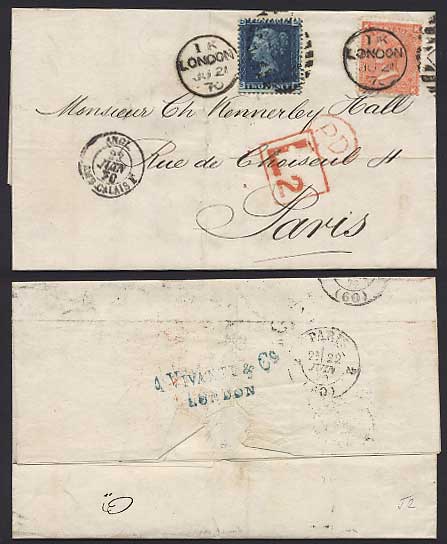 1 K
LONDON
JU 21
70
TWO PENCE
1 K
LONDON
JU 21
70
Monsieur Ch Kennerley Hall
PD
L2
Rue de Choiseul 4
Paris
ANGL.
22
JUIN
70
AMB. CALAIS F
(60)
A VIVANTE & Co
LONDON
PARIS
22
JUIN
(60)
J2